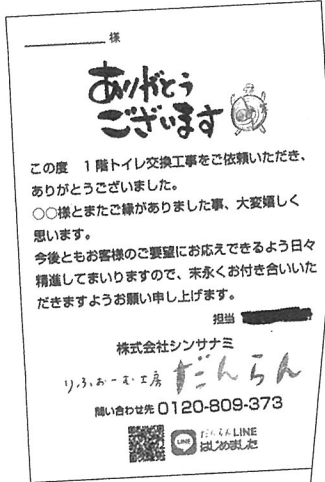 様
ありがとう
ございます
この度 １階トイレ交換工事をご依頼いただき、
ありがとうございました。
○○様とまたご縁がありました事、大変嬉しく
思います。
今後ともお客様のご要望にお応えできるよう日々
精進してまいりますので、末永くお付き合いいた
だきますようお願い申し上げます。
担当
株式会社シンサナミ
りふぉーむ工房 だんらん
問い合わせ先 0120-809-373
だんらんLINE
LINE はじめました